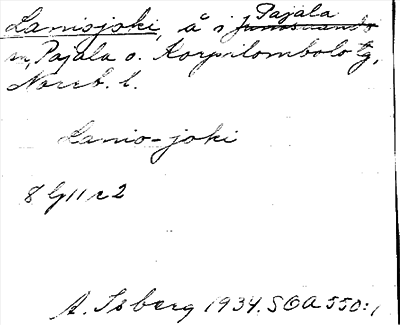 Pajala
Laniojoki, å i Junosuando
m, Pajala o. Korpilombolo tg,
Norrb. l.
Lanio-joki
8 lg 11 c 2
A. Isberg 1934. SOA 550:1